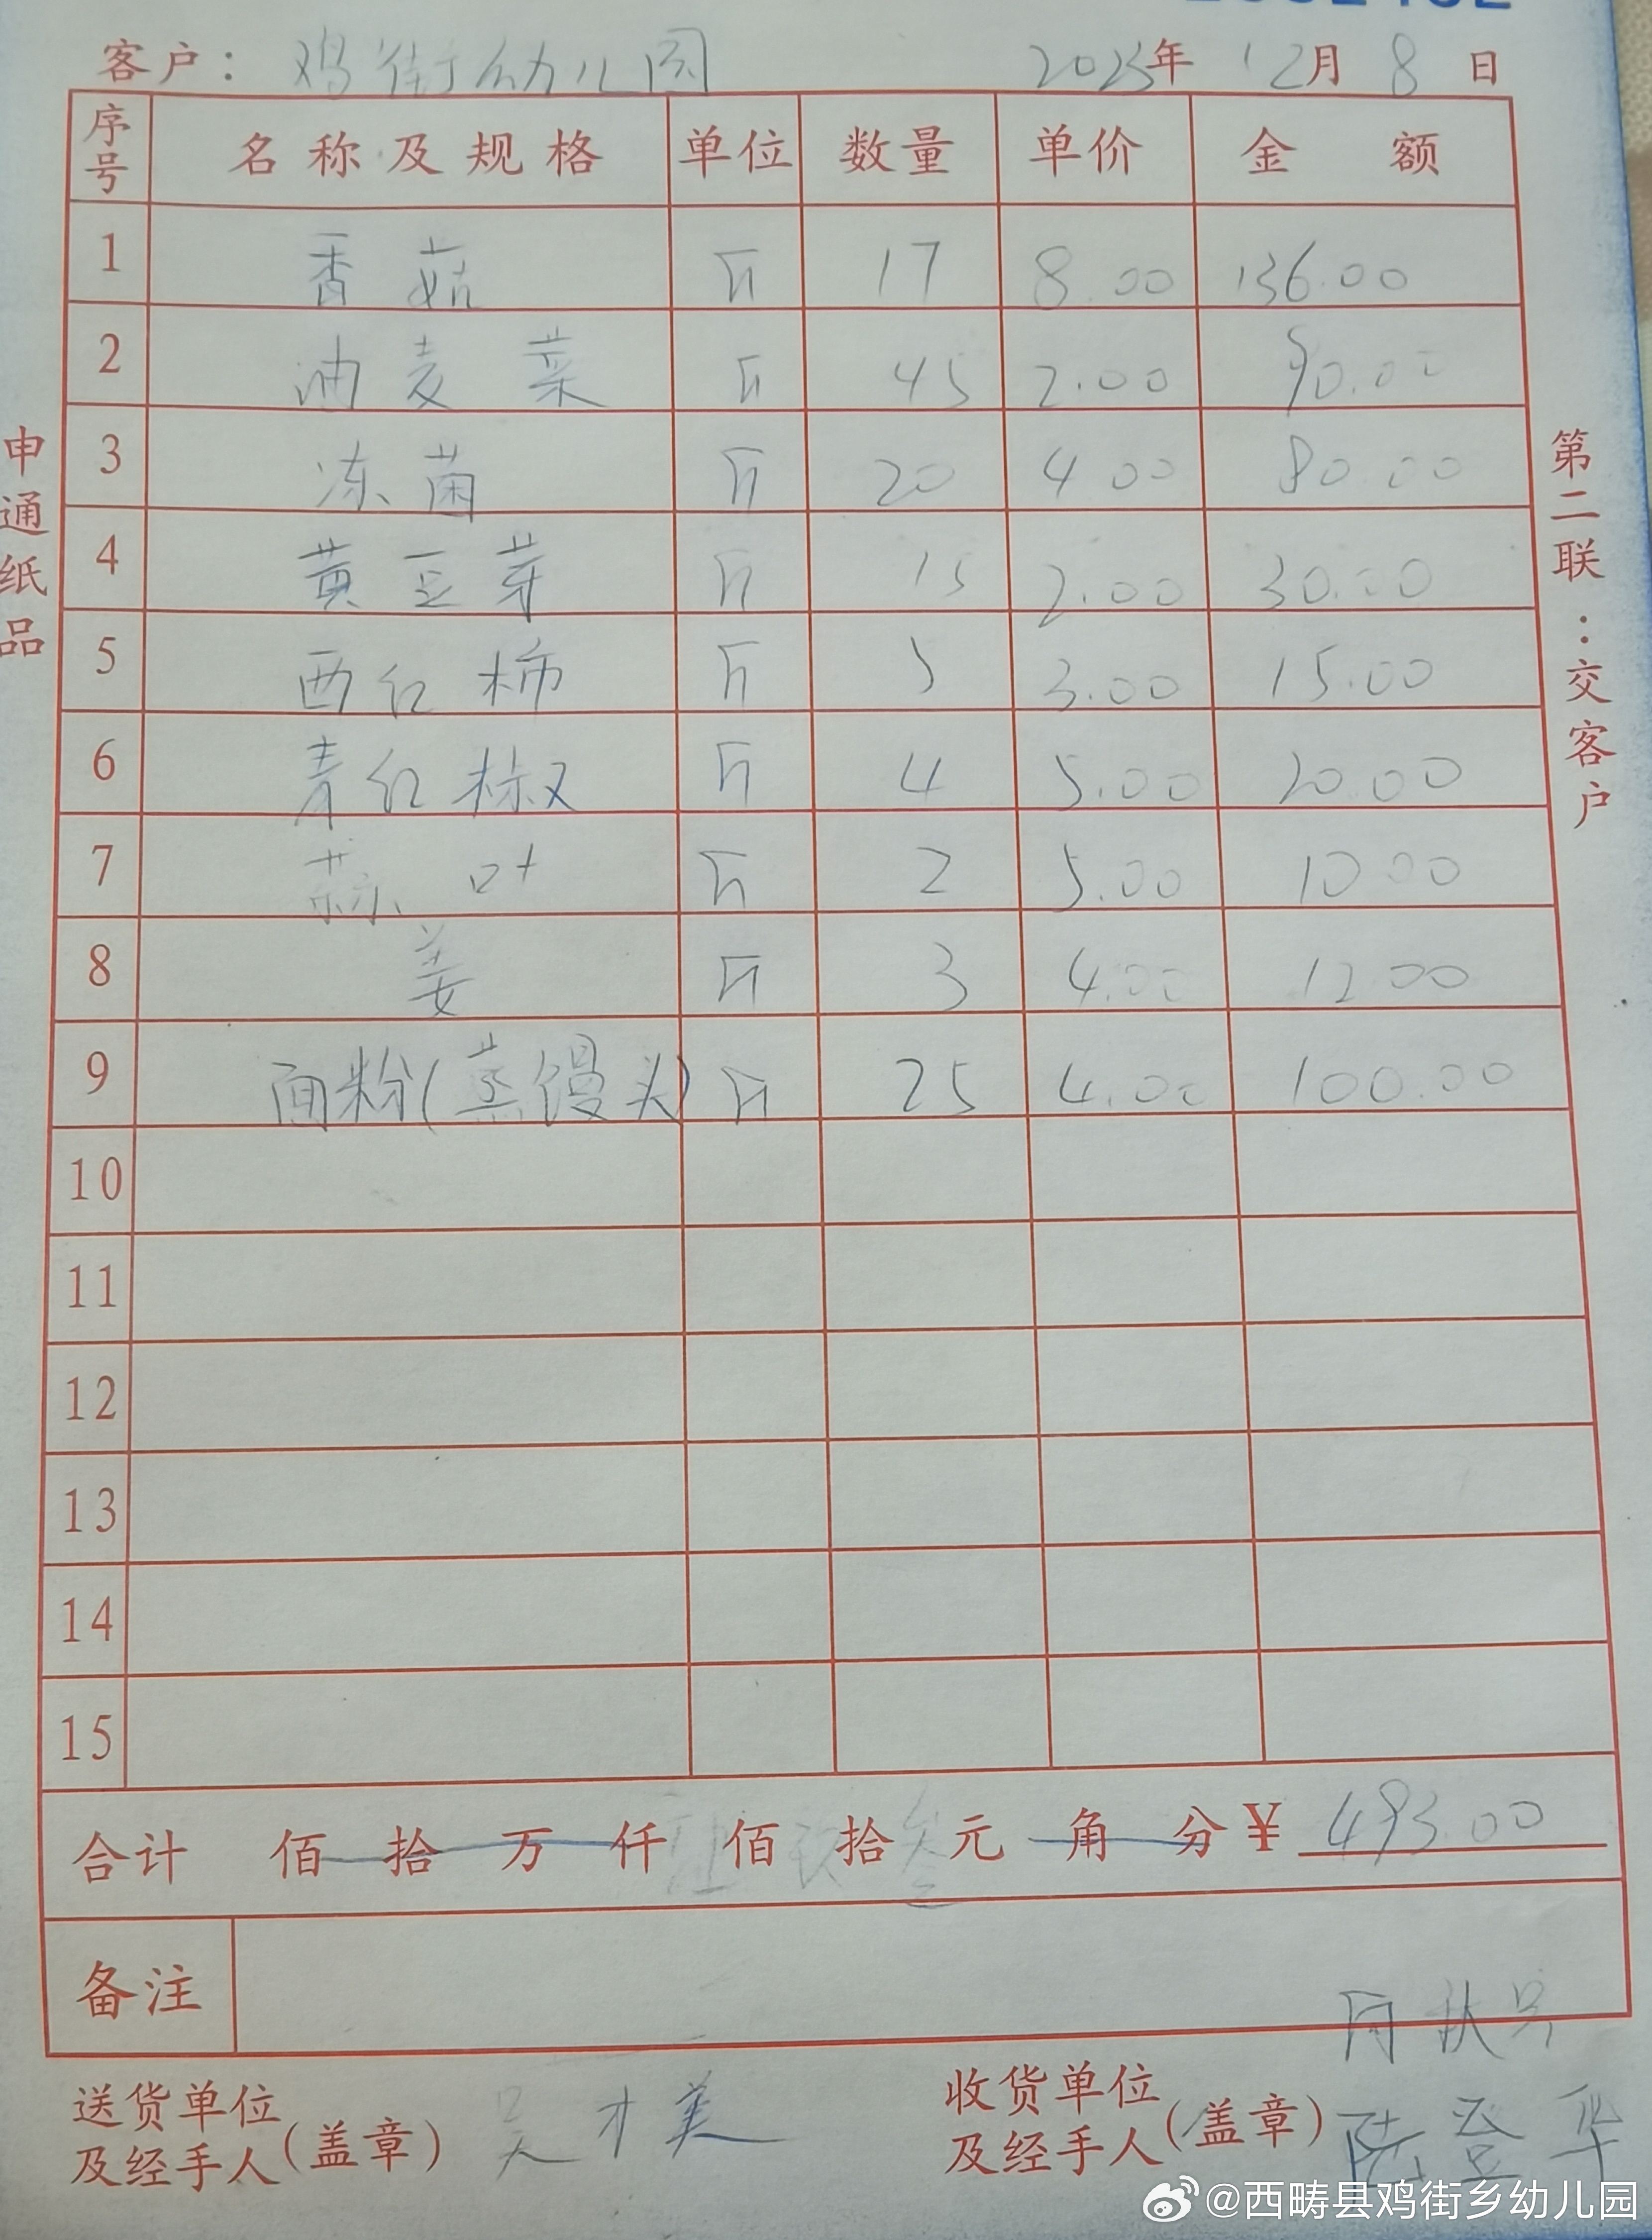 客户：鸡街幼儿园 2025年12月8日
序号 名称及规格 单位 数量 单价 金额
1 香菇 斤 17 8.00 136.00
2 油麦菜 斤 45 2.00 90.00
3 冻菌 斤 20 4.00 80.00
4 黄豆芽 斤 15 2.00 30.00
5 西红柿 斤 5 3.00 15.00
6 青红椒 斤 4 5.00 20.00
7 蒜叶 斤 2 5.00 10.00
8 姜 斤 3 4.00 12.00
9 面粉(蒸馒头) 斤 25 4.00 100.00
10
11
12
13
14
15
合计 佰 拾 万 仟 肆佰玖拾叁元 角 分￥493.00
备注
送货单位及经手人(盖章) 吴才美
收货单位及经手人(盖章) 陆登华
申通纸品
第二联：交客户
@西畴县鸡街乡幼儿园